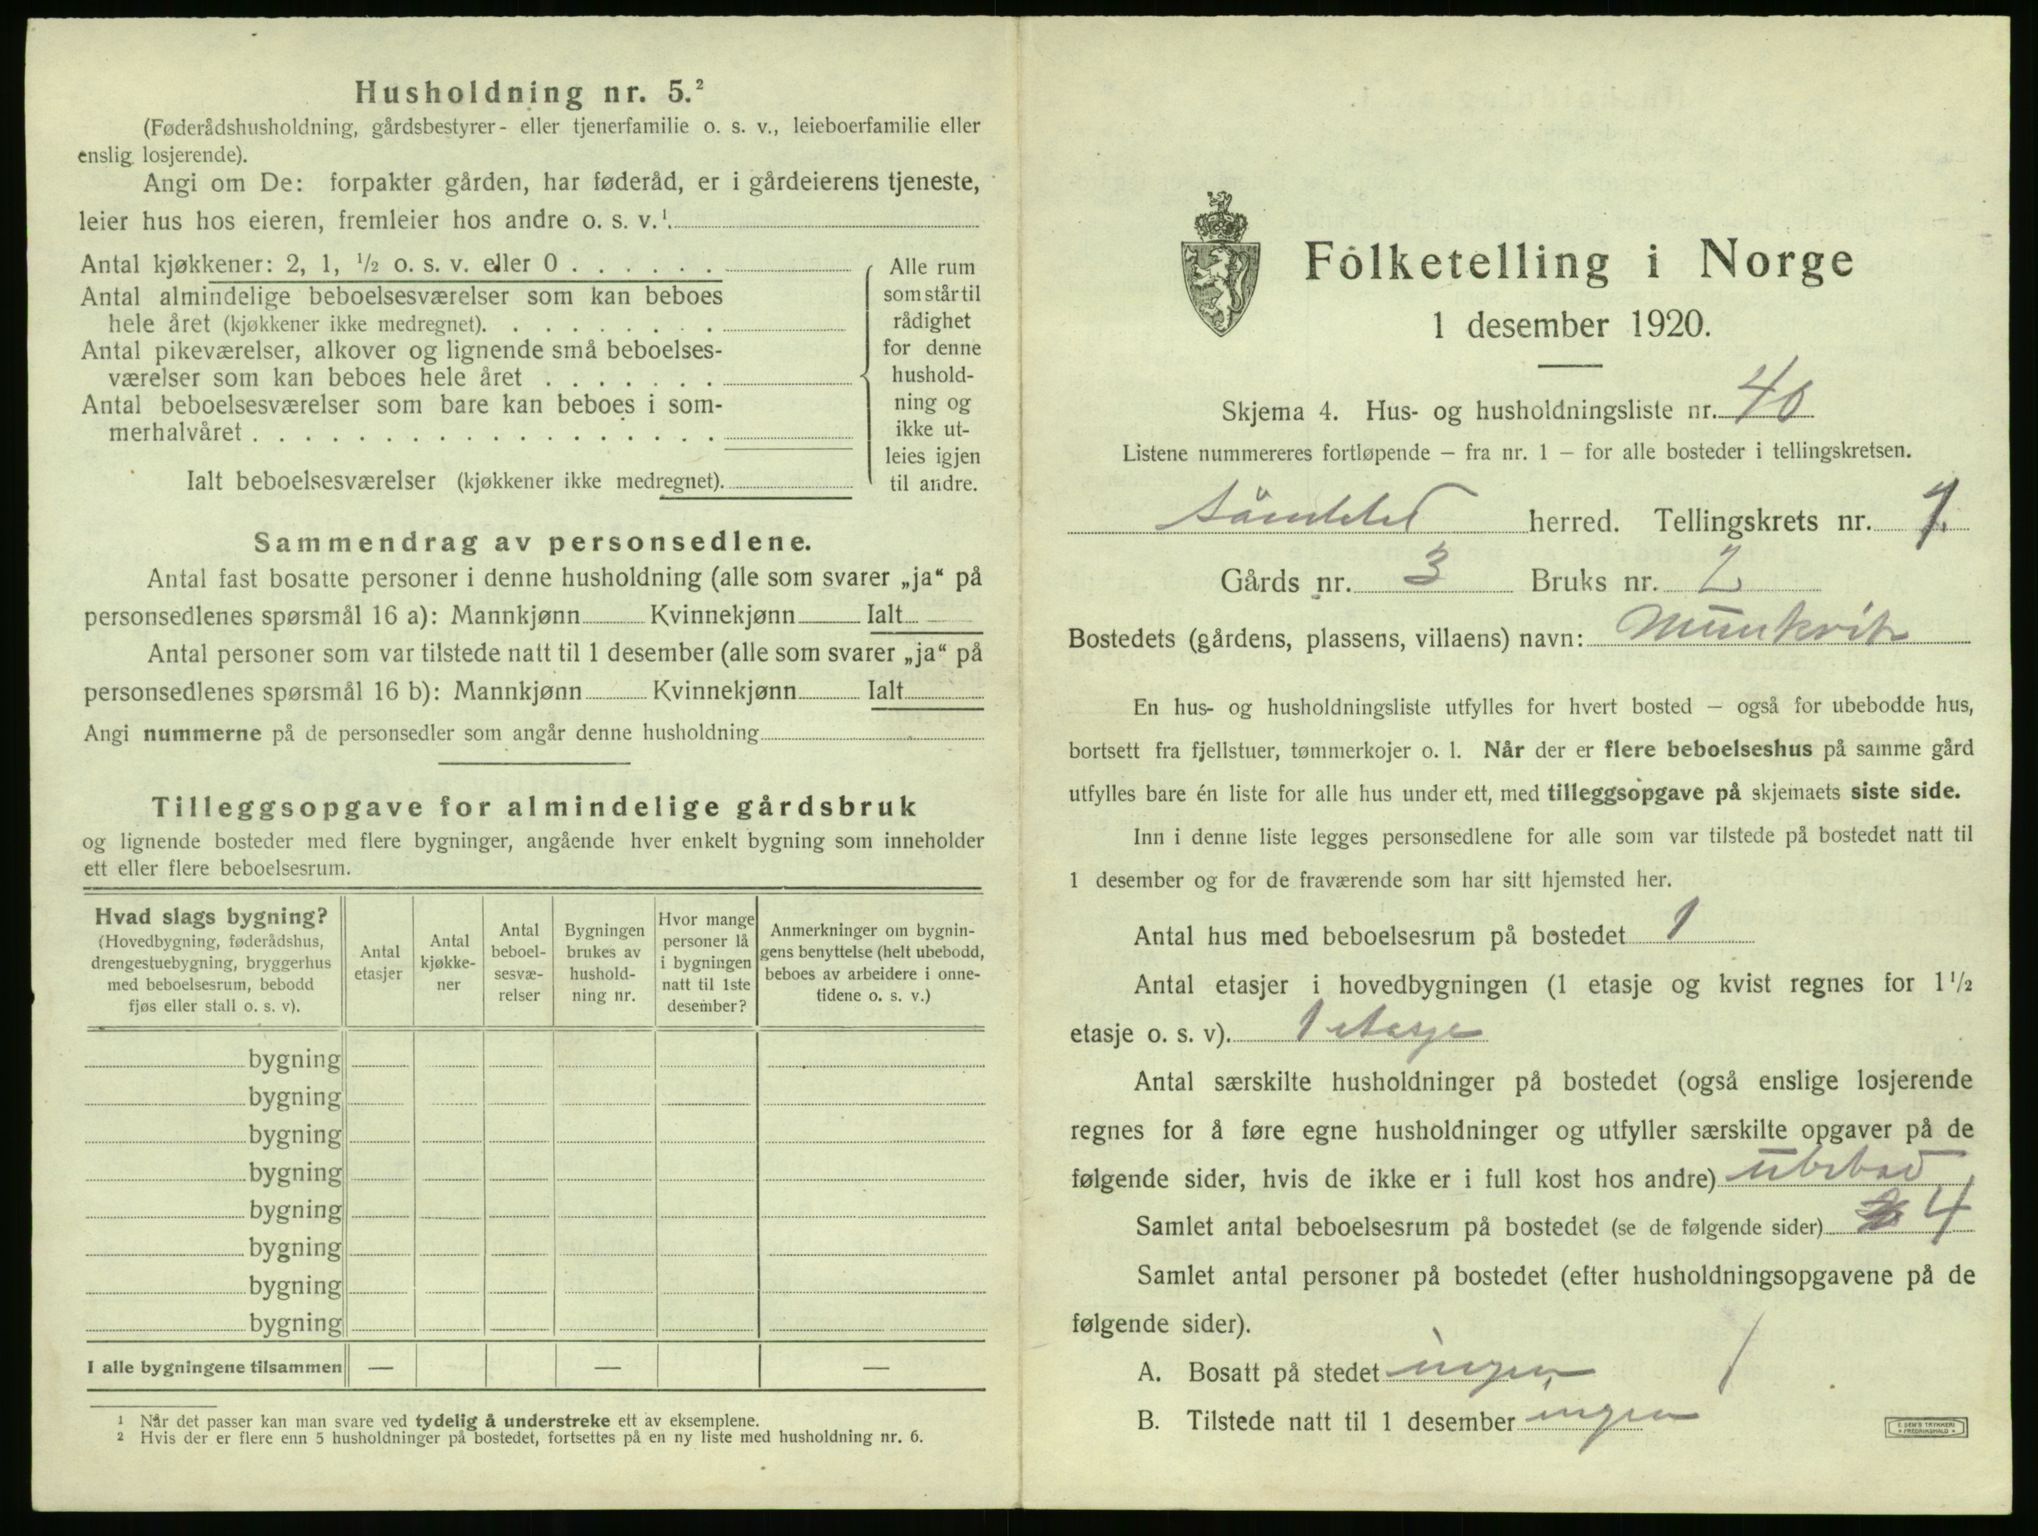 Husholdning nr. 5.²
(Føderådshusholdning, gårdsbestyrer- eller tjenerfamilie o. s. v., leieboerfamilie eller
enslig losjerende).
Angi om De: forpakter gården, har føderåd, er i gårdeierens tjeneste,
leier hus hos eieren, fremleier hos andre o. s. v.¹
Antal kjøkkener: 2, 1, ½ o. s. v. eller 0 . . . . . .
Antal almindelige beboelsesværelser som kan beboes
hele året (kjøkkener ikke medregnet). . . . . . . . .
Antal pikeværelser, alkover og lignende små beboelses-
værelser som kan beboes hele året . . . . . . .
Antal beboelsesværelser som bare kan beboes i som-
merhalvåret . . . . . . . . . . . . . . . . . .
Ialt beboelsesværelser (kjøkkener ikke medregnet).
Alle rum
som står til
rådighet
for denne
hushold-
ning og
ikke ut-
leies igjen
til andre.
Sammendrag av personsedlene.
Antal fast bosatte personer i denne husholdning (alle som svarer „ja“ på
personsedlenes spørsmål 16 a): Mannkjønn Kvinnekjønn Ialt
Antal personer som var tilstede natt til 1 desember (alle som svarer „ja“ på
personsedlenes spørsmål 16 b): Mannkjønn Kvinnekjønn Ialt
Angi nummerne på de personsedler som angår denne husholdning
Tilleggsopgave for almindelige gårdsbruk
og lignende bosteder med flere bygninger, angående hver enkelt bygning som inneholder
ett eller flere beboelsesrum.
Hvad slags bygning?
(Hovedbygning, føderådshus,
drengestuebygning, bryggerhus
med beboelsesrum, bebodd
fjøs eller stall o. s. v).
Antal
etasjer
Antal
kjøkke-
ner
Antal
beboel-
sesvæ-
relser
Bygningen
brukes av
hushold-
ning nr.
Hvor mange
personer lå
i bygningen
natt til 1ste
desember?
Anmerkninger om bygnin-
gens benyttelse (helt ubebodd,
beboes av arbeidere i onne-
tidene o. s. v.)
bygning
bygning
bygning
bygning
bygning
bygning
bygning
bygning
I alle bygningene tilsammen — — —
¹ Når det passer kan man svare ved tydelig å understreke ett av eksemplene.
² Hvis der er flere enn 5 husholdninger på bostedet, fortsettes på en ny liste med husholdning nr. 6.
Folketelling i Norge
1 desember 1920.
Skjema 4. Hus- og husholdningsliste nr. 40
Listene nummereres fortløpende – fra nr. 1 – for alle bosteder i tellingskretsen.
herred. Tellingskrets nr. 7.
Gårds nr. 3 Bruks nr. 2
Bostedets (gårdens, plassens, villaens) navn: Munkvik
En hus- og husholdningsliste utfylles for hvert bosted – også for ubebodde hus,
bortsett fra fjellstuer, tømmerkojer o. l. Når der er flere beboelseshus på samme gård
utfylles bare én liste for alle hus under ett, med tilleggsopgave på skjemaets siste side.
Inn i denne liste legges personsedlene for alle som var tilstede på bostedet natt til
1 desember og for de fraværende som har sitt hjemsted her.
Antal hus med beboelsesrum på bostedet 1
Antal etasjer i hovedbygningen (1 etasje og kvist regnes for 1½
etasje o. s. v). 1 etasje
Antal særskilte husholdninger på bostedet (også enslige losjerende
regnes for å føre egne husholdninger og utfyller særskilte opgaver på de
følgende sider, hvis de ikke er i full kost hos andre) ubebod
Samlet antal beboelsesrum på bostedet (se de følgende sider) 4
Samlet antal personer på bostedet (efter husholdningsopgavene på de
følgende sider).
A. Bosatt på stedet ingen
B. Tilstede natt til 1 desember ingen
E. SEM'S TRYKKERI
FREDRIKSHALD